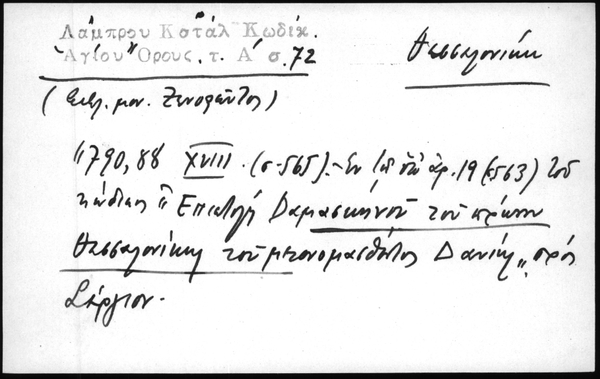 Λάμπρου Κατάλ Κωδικ.
Ἁγίου Ὄρους, τ. Α΄ σ. 72
Θεσσαλονίκη
( μον. Ξενοφῶντος)
"790, 88 XVIII. (σ. 565). – Ἐν ἀρ. 19 (σ. 563) τοῦ
κώδικος "Ἐπιστολὴ Δαμασκηνοῦ τοῦ πρώην
Θεσσαλονίκης τοῦ μετονομασθέντος Δανιὴλ" πρὸς
Σέργιον.